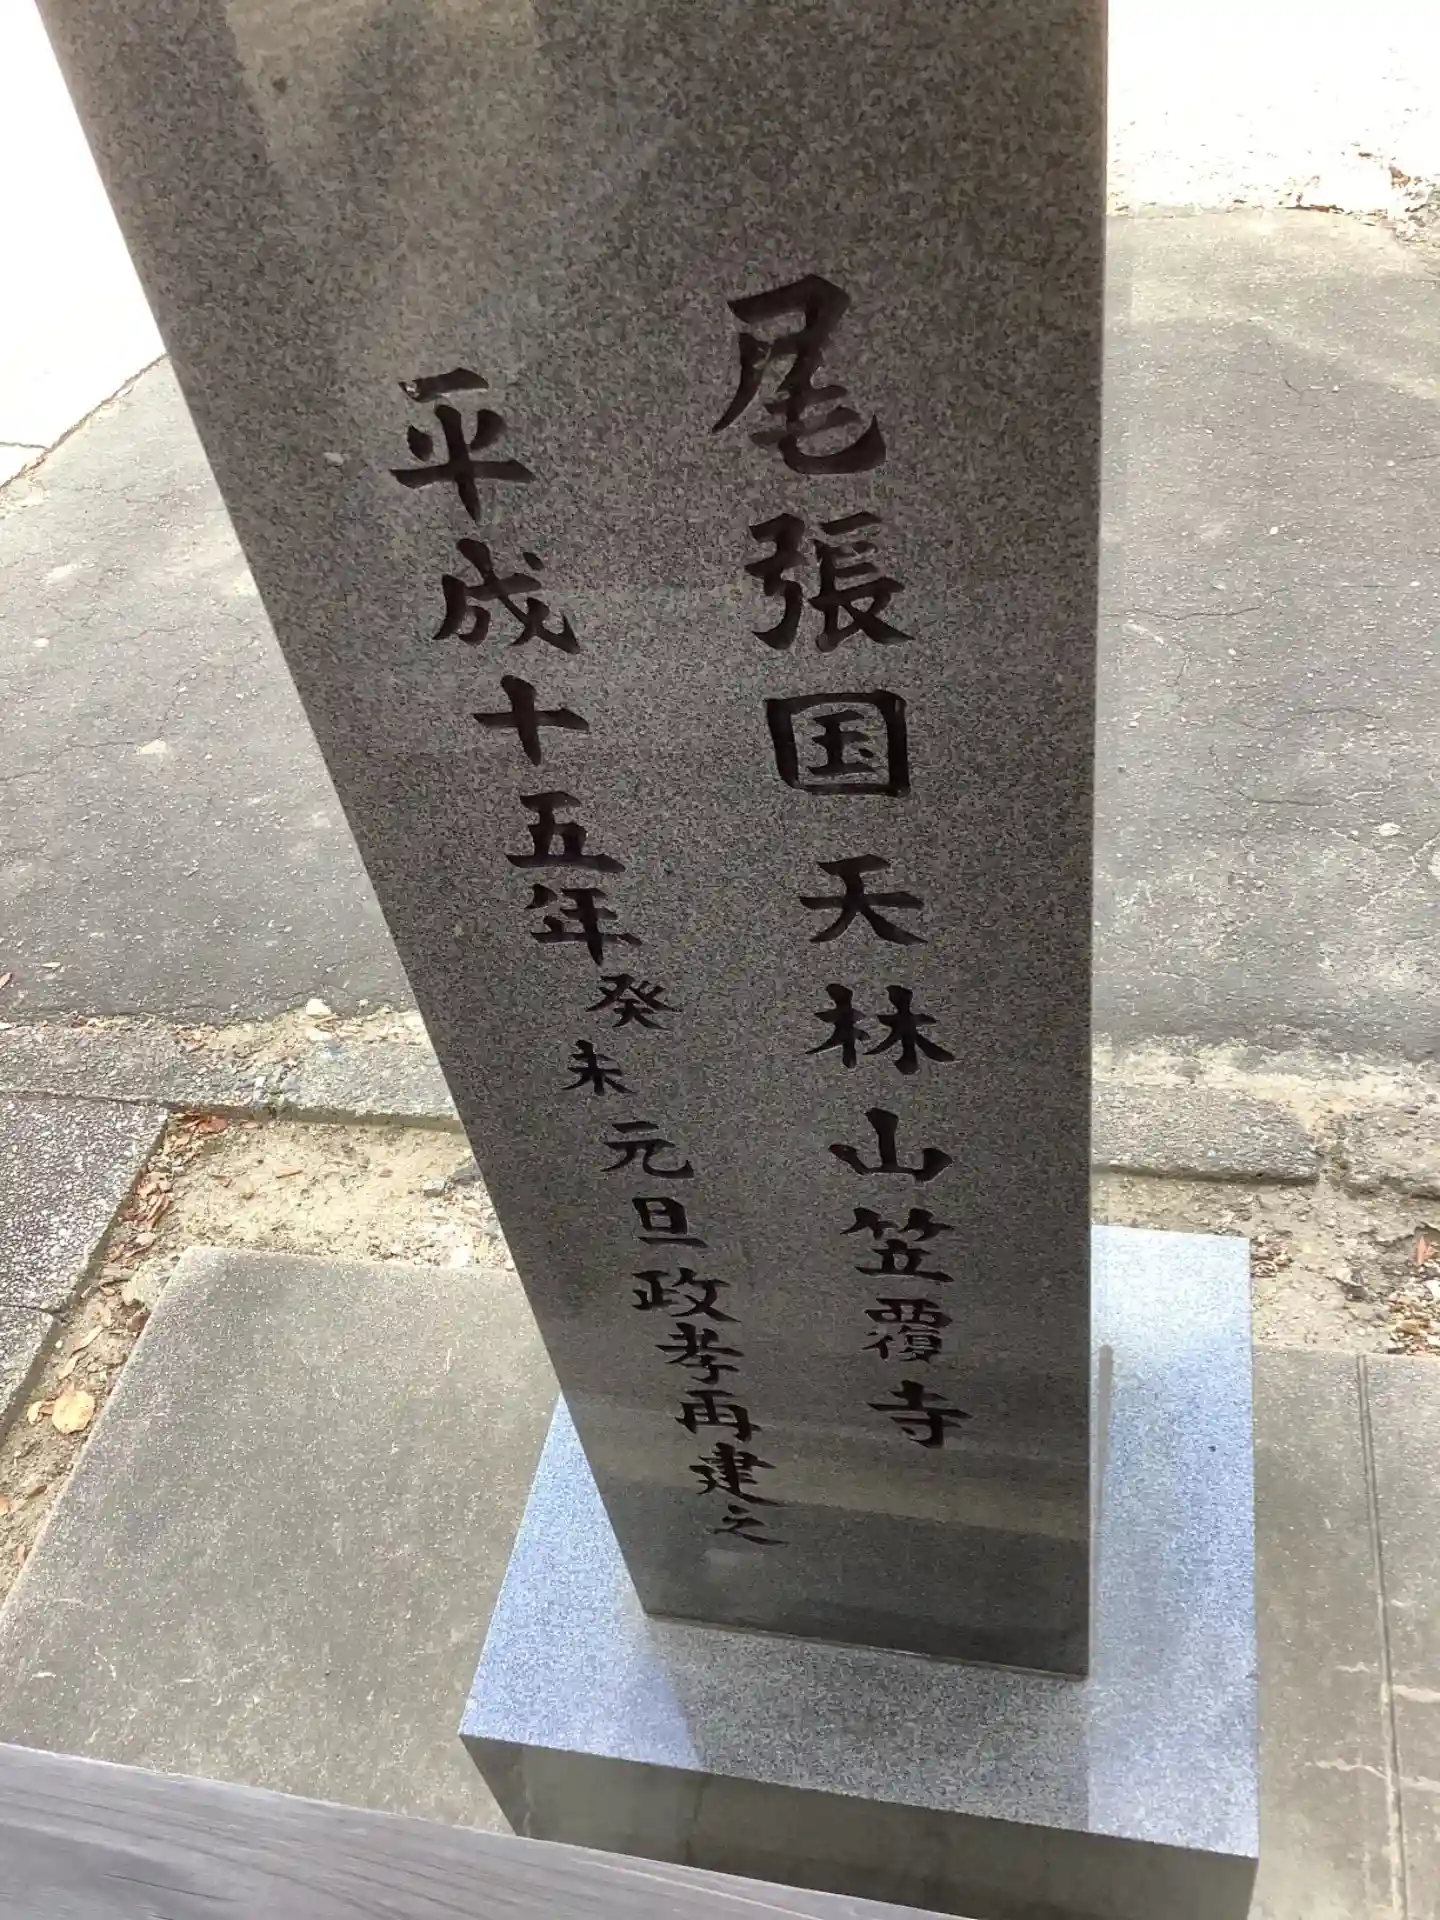 尾張国天林山笠覆寺
平成十五年癸未元旦政孝再建之